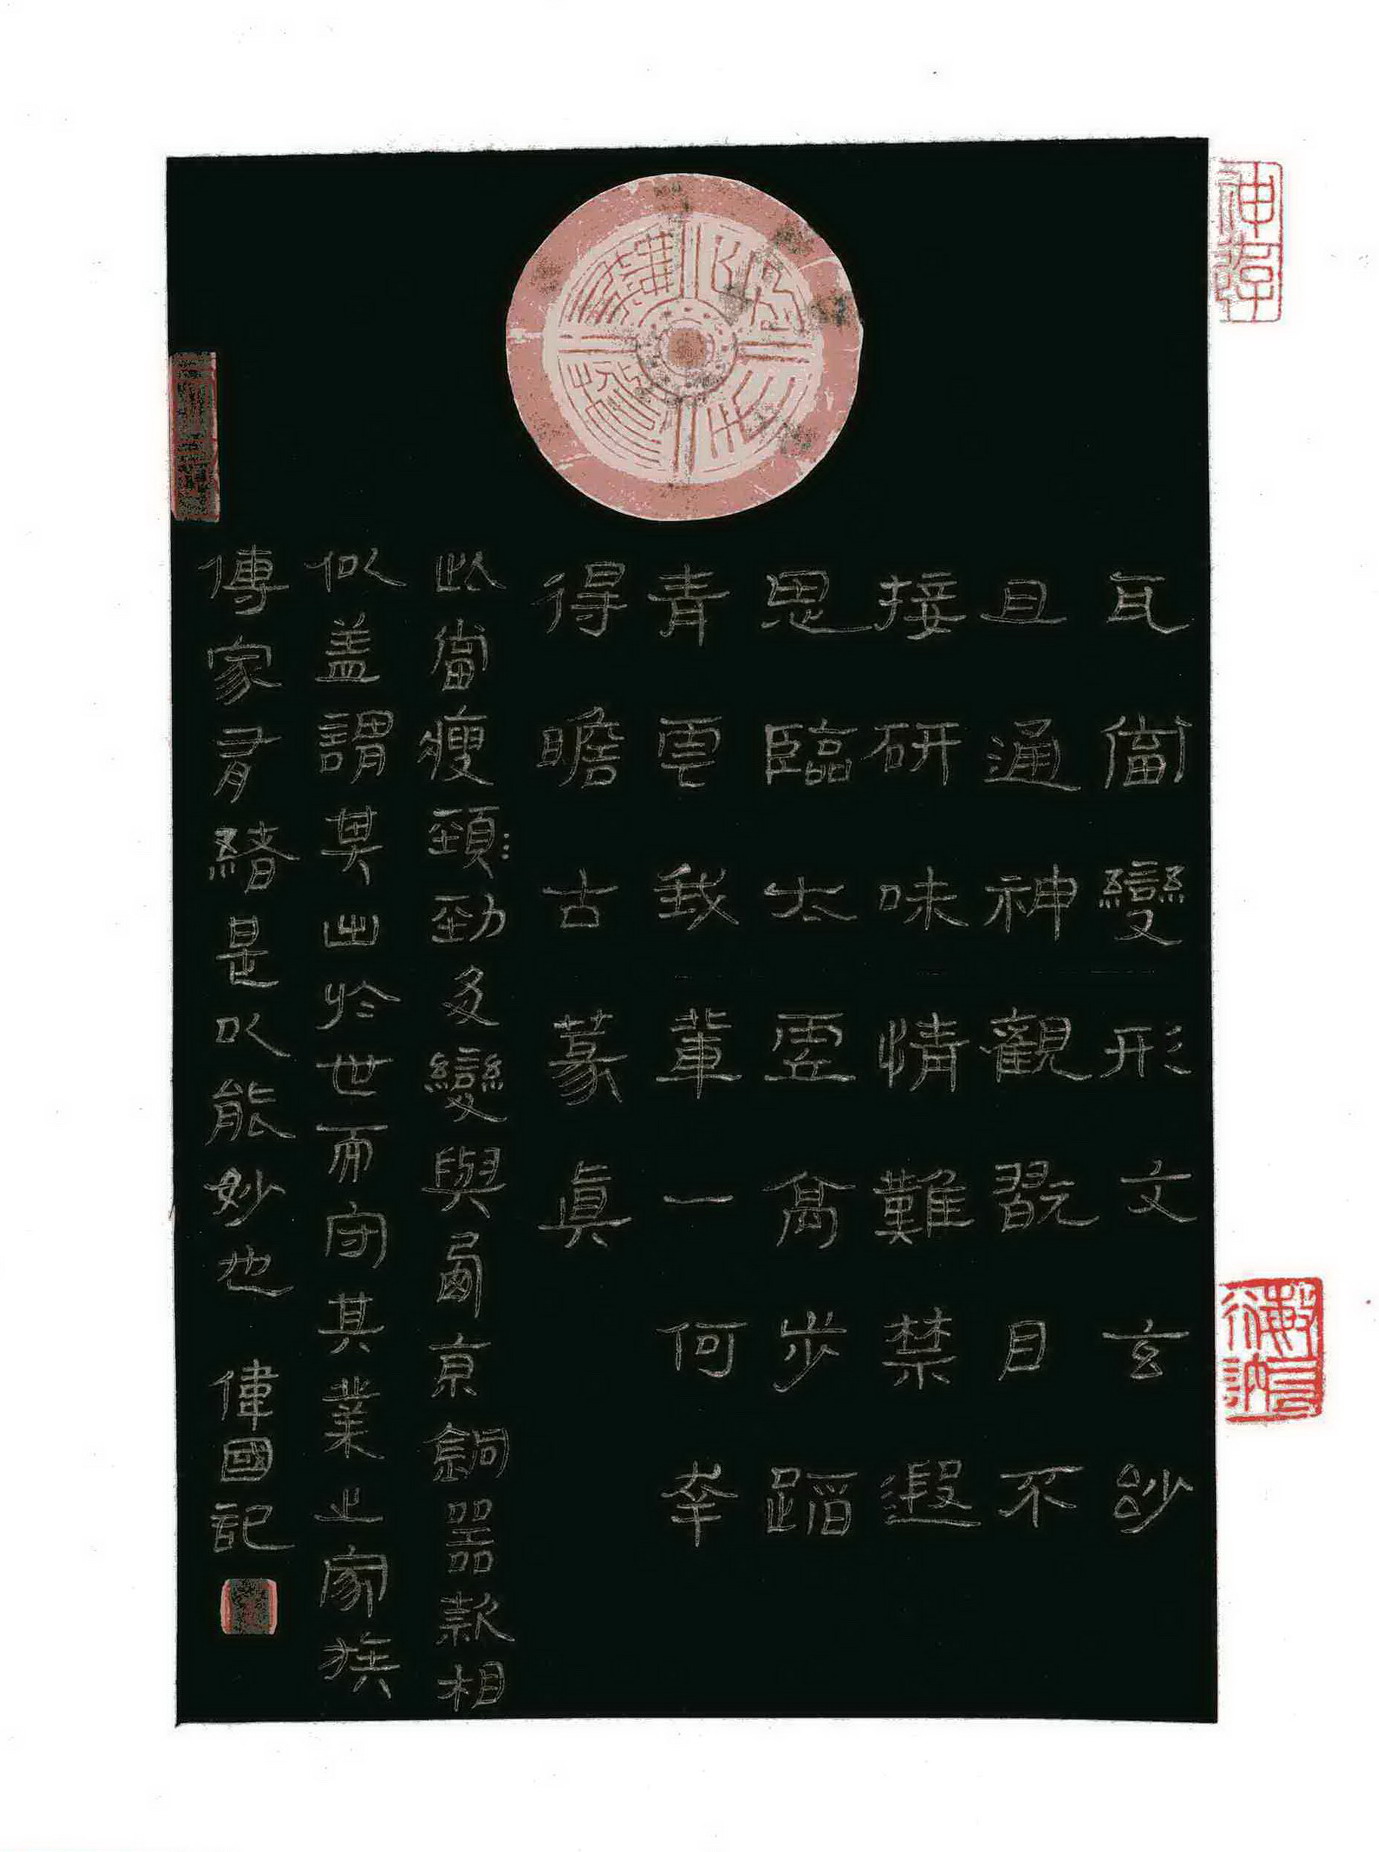 瓦當變形文玄玅
且通神觀翫目不
接研味情難禁遐
思臨太虛高步蹈
青雲我輩一何幸
得瞻古篆眞
此當瘦頸勁多變與京銅器款相
似蓋謂其出於世而守其業之家族
傳家有緒是以能妙也 偉國記